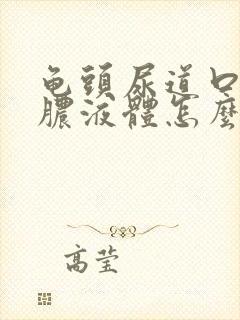 龟頭尿道口
膿液體怎麼
高莹